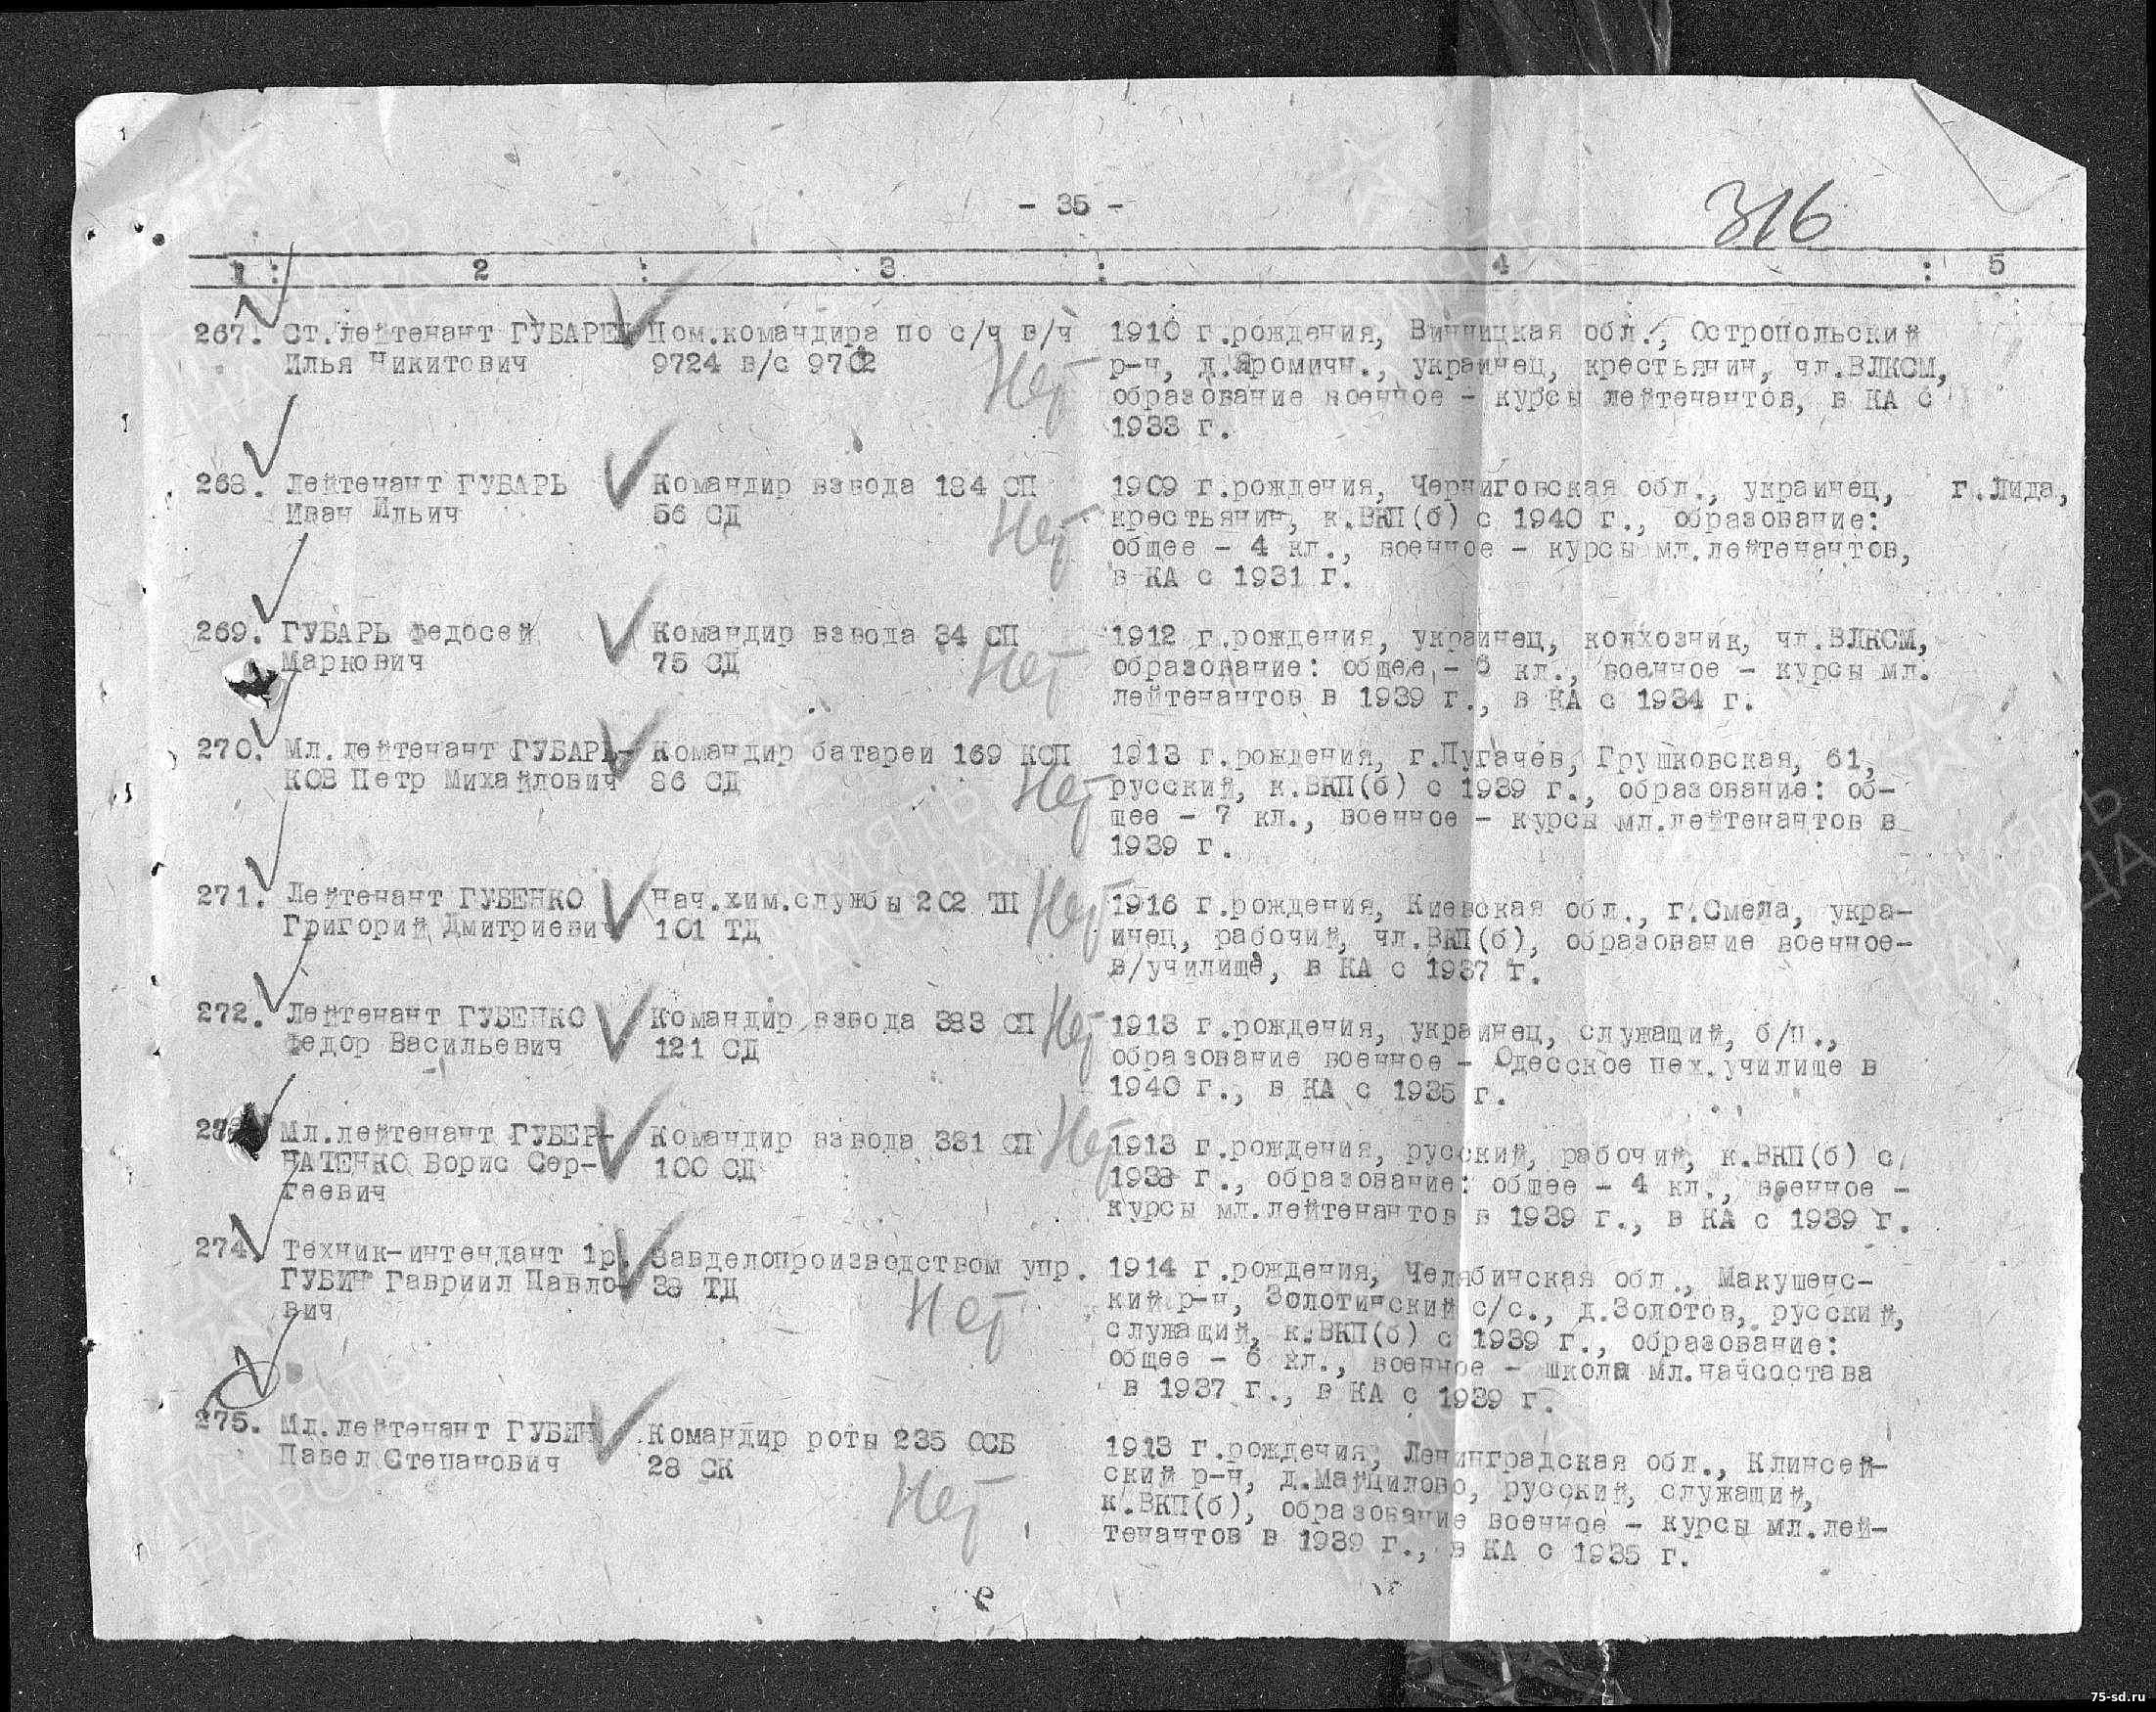 - 35 -
316
1 : 2 : 3 : 4 : 5
267. Ст.лейтенант ГУБАРЕВ Пом.командира по с/ч в/ч 1910 г.рождения, Винницкая обл., Остропольский
Илья Никитович 9724 в/с 9702 Нет р-н, д.Яромичн., украинец, крестьянин, чл.ВЛКСМ,
образование военное - курсы лейтенантов, в КА с
1933 г.
268. Лейтенант ГУБАРЬ Командир взвода 184 СП 1909 г.рождения, Черниговская обл., украинец, г.Лида,
Иван Ильич 56 СД Нет крестьянин, к.ВКП(б) с 1940 г., образование:
общее - 4 кл., военное - курсы мл.лейтенантов,
в КА с 1931 г.
269. ГУБАРЬ Федосей Командир взвода 34 СП 1912 г.рождения, украинец, колхозник, чл.ВЛКСМ,
Маркович 75 СД Нет образование: общее - 6 кл., военное - курсы мл.
лейтенантов в 1939 г., в КА с 1934 г.
270. Мл.лейтенант ГУБАРЬ- Командир батареи 169 КСП 1913 г.рождения, г.Пугачев, Грушковская, 61,
КОВ Петр Михайлович 86 СД Нет русский, к.ВКП(б) с 1939 г., образование: об-
щее - 7 кл., военное - курсы мл.лейтенантов в
1939 г.
271. Лейтенант ГУБЕНКО Нач.хим.службы 202 ТП Нет 1916 г.рождения, Киевская обл., г.Смела, укра-
Григорий Дмитриевич 101 ТД инец, рабочий, чл.ВКП(б), образование военное-
в/училище, в КА с 1937 г.
272. Лейтенант ГУБЕНКО Командир взвода 383 СП Нет 1913 г.рождения, украинец, служащий, б/п.,
Федор Васильевич 121 СД образование военное - Одесское пех.училище в
1940 г., в КА с 1935 г.
Мл.лейтенант ГУБЕР- Командир взвода 331 СП Нет 1913 г.рождения, русский, рабочий, к.ВКП(б) с
НАТЕНКО Борис Сер- 100 СД 1938 г., образование: общее - 4 кл., военное -
геевич курсы мл.лейтенантов в 1939 г., в КА с 1939 г.
274. Техник-интендант 1р. Завделопроизводством упр. 1914 г.рождения, Челябинская обл., Макушенс-
ГУБИН Гавриил Павло- 38 ТД Нет кий р-н, Золотинский с/с., д.Золотов, русский,
вич служащий, к.ВКП(б) с 1939 г., образование:
общее - 6 кл., военное - школа мл.начсостава
в 1937 г., в КА с 1939 г.
275. Мл.лейтенант ГУБИН Командир роты 235 ОСБ 1913 г.рождения, Ленинградская обл., Клинсей-
Павел Степанович 28 СК Нет ский р-н, д.Майцилово, русский, служащий,
к.ВКП(б), образование военное - курсы мл.лей-
тенантов в 1939 г., в КА с 1935 г.
ПАМЯТЬ
НАРОДА
75-sd.ru